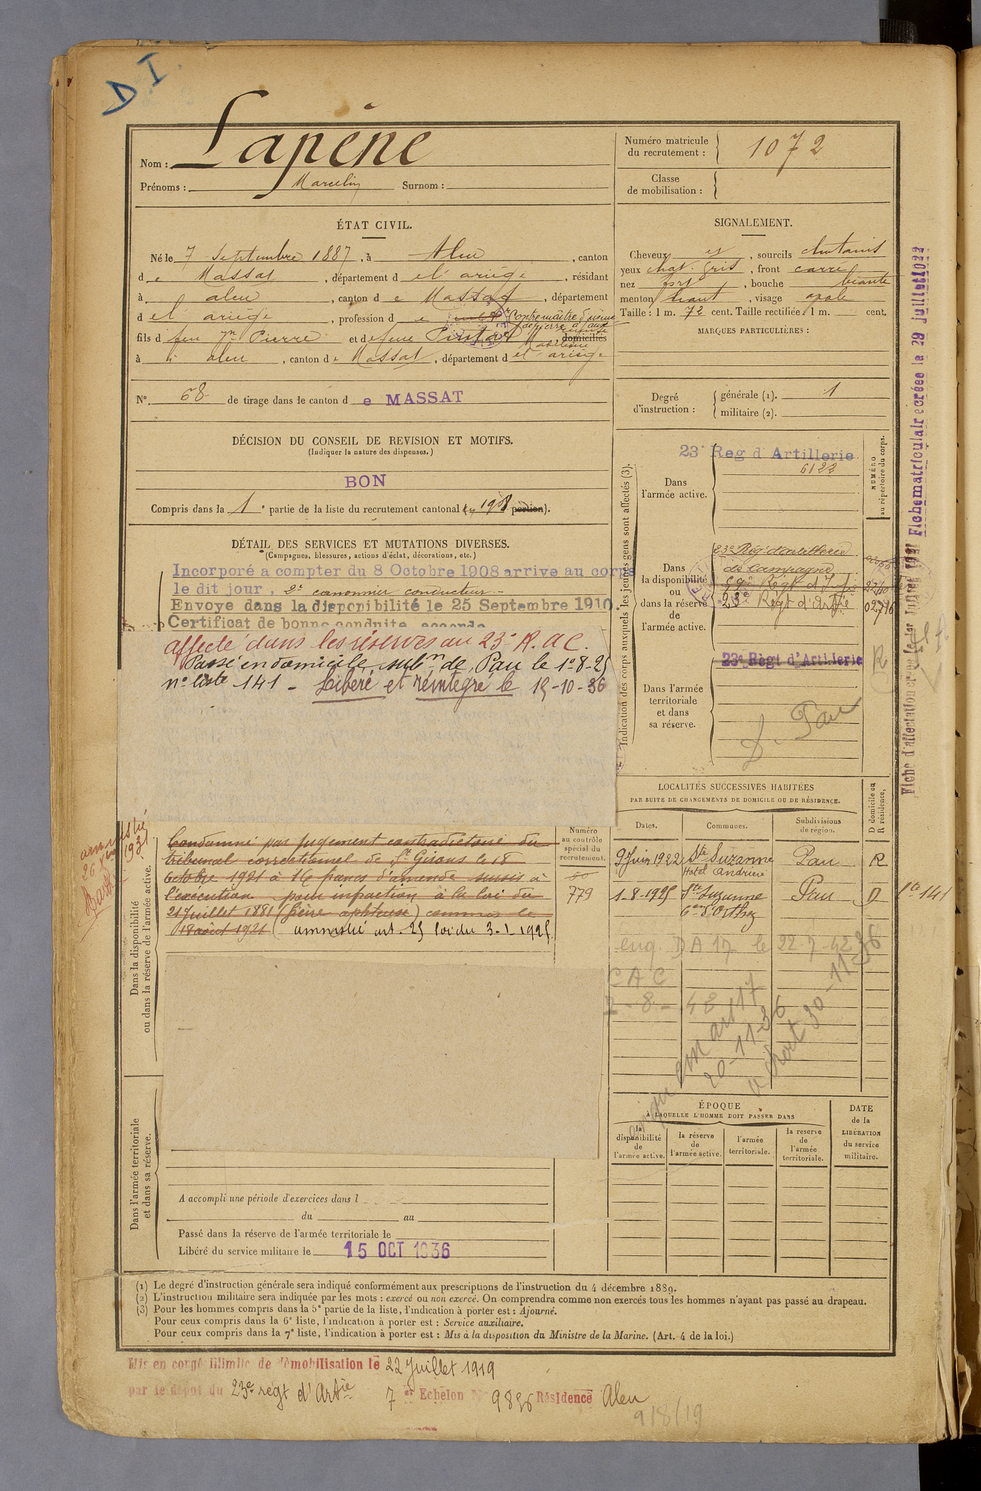 D I
Nom : Lapène
Prénoms : Marcelin Surnom :
Numéro matricule
du recrutement : 1072
Classe
de mobilisation :
ÉTAT CIVIL.
Né le 7 Septembre 1887, à Aleu, canton
de Massat, département d el ariège, résidant
à aleu, canton de Massat, département
d el ariège, profession de Contremaître d'usine
fils d feu Pierre et de feue domiciliés
à aleu, canton de Massat, département d el ariège
SIGNALEMENT.
Cheveux , sourcils chatains
yeux chat. gris, front carré
nez fort, bouche béante
menton saillant, visage ovale
Taille : 1 m. 72 cent. Taille rectifiée 1 m. cent.
MARQUES PARTICULIÈRES :
N° 68 de tirage dans le canton d e MASSAT
Degré
d'instruction :
générale (1). 1
militaire (2).
DÉCISION DU CONSEIL DE REVISION ET MOTIFS.
(Indiquer la nature des dispenses.)
BON
Compris dans la 1e partie de la liste du recrutement cantonal ( 1908 portion).
DÉTAIL DES SERVICES ET MUTATIONS DIVERSES.
(Campagnes, blessures, actions d'éclat, décorations, etc.)
Incorporé a compter du 8 Octobre 1908 arrive au corps
le dit jour, 2e canonnier conducteur
Envoye dans la disponibilité le 25 Septembre 1910.
Certificat de bonne conduite accordé
affecté dans les réserves au 23e R.A.C.
Passé en domicile subon de Pau le 1-8-25
n° liste 141 - Libéré et réintégré le 15-10-36
Indication des corps auxquels les jeunes gens sont affectés (3).
NUMÉRO
au répertoire du corps.
Dans
l'armée active.
23e Reg d Artillerie
6123
Dans
la disponibilité
ou
dans la réserve
de
l'armée active.
23e Rég. d'artillerie
de Campagne
23e Régt d'Artie
02716
Dans l'armée
territoriale
et dans
sa réserve.
23e Régt d'Artillerie
R
D. Pau
Fiche d'affectation
Fiche matriculaire créée le 29 juillet 1922
Dans la disponibilité
ou dans la réserve de l'armée active.
Condamné par jugement contradictoire du
tribunal correctionnel de St Girons le 18
Octobre 1921 à 16 francs d'amende sursis à
l'exécution pour infraction à la loi du
21 juillet 1881 (fièvre aphteuse) commis le
18 août 1921 ( amnistié art. 25 loi du 3-1-1925
Numéro
au contrôle
spécial du
recrutement.
779
LOCALITÉS SUCCESSIVES HABITÉES
PAR SUITE DE CHANGEMENTS DE DOMICILE OU DE RÉSIDENCE.
Dates. Communes. Subdivisions
de région. D domicile ou
R résidence.
9 Juin 1922 Ste Suzanne
Hotel Andrieu Pau R
1-8-1925 Ste Suzanne
Con d'Orthez Pau D
Lte 141
enq. DA 17 le 22 7-42
CAC
2-8-42
20-11-36
30-11-36
ÉPOQUE
A LAQUELLE L'HOMME DOIT PASSER DANS
la
disponibilité
de
l'armée active.
la réserve
de
l'armée active.
l'armée
territoriale.
la réserve
de
l'armée
territoriale.
DATE
de la
LIBÉRATION
du service
militaire.
Dans l'armée territoriale
et dans sa réserve.
A accompli une période d'exercices dans l
du au
Passé dans la réserve de l'armée territoriale le
Libéré du service militaire le 15 OCT 1936
(1) Le degré d'instruction générale sera indiqué conformément aux prescriptions de l'instruction du 4 décembre 1889.
(2) L'instruction militaire sera indiquée par les mots : exercé ou non exercé. On comprendra comme non exercés tous les hommes n'ayant pas passé au drapeau.
(3) Pour les hommes compris dans la 5e partie de la liste, l'indication à porter est : Ajourné.
Pour ceux compris dans la 6e liste, l'indication à porter est : Service auxiliaire.
Pour ceux compris dans la 7e liste, l'indication à porter est : Mis à la disposition du Ministre de la Marine. (Art. 4 de la loi.)
Mis en congé illimité de démobilisation le 22 Juillet 1919
par le dépot du 23e régt d'Artie 7 er Echelon N° 9836 Résidence Aleu
9/8/19